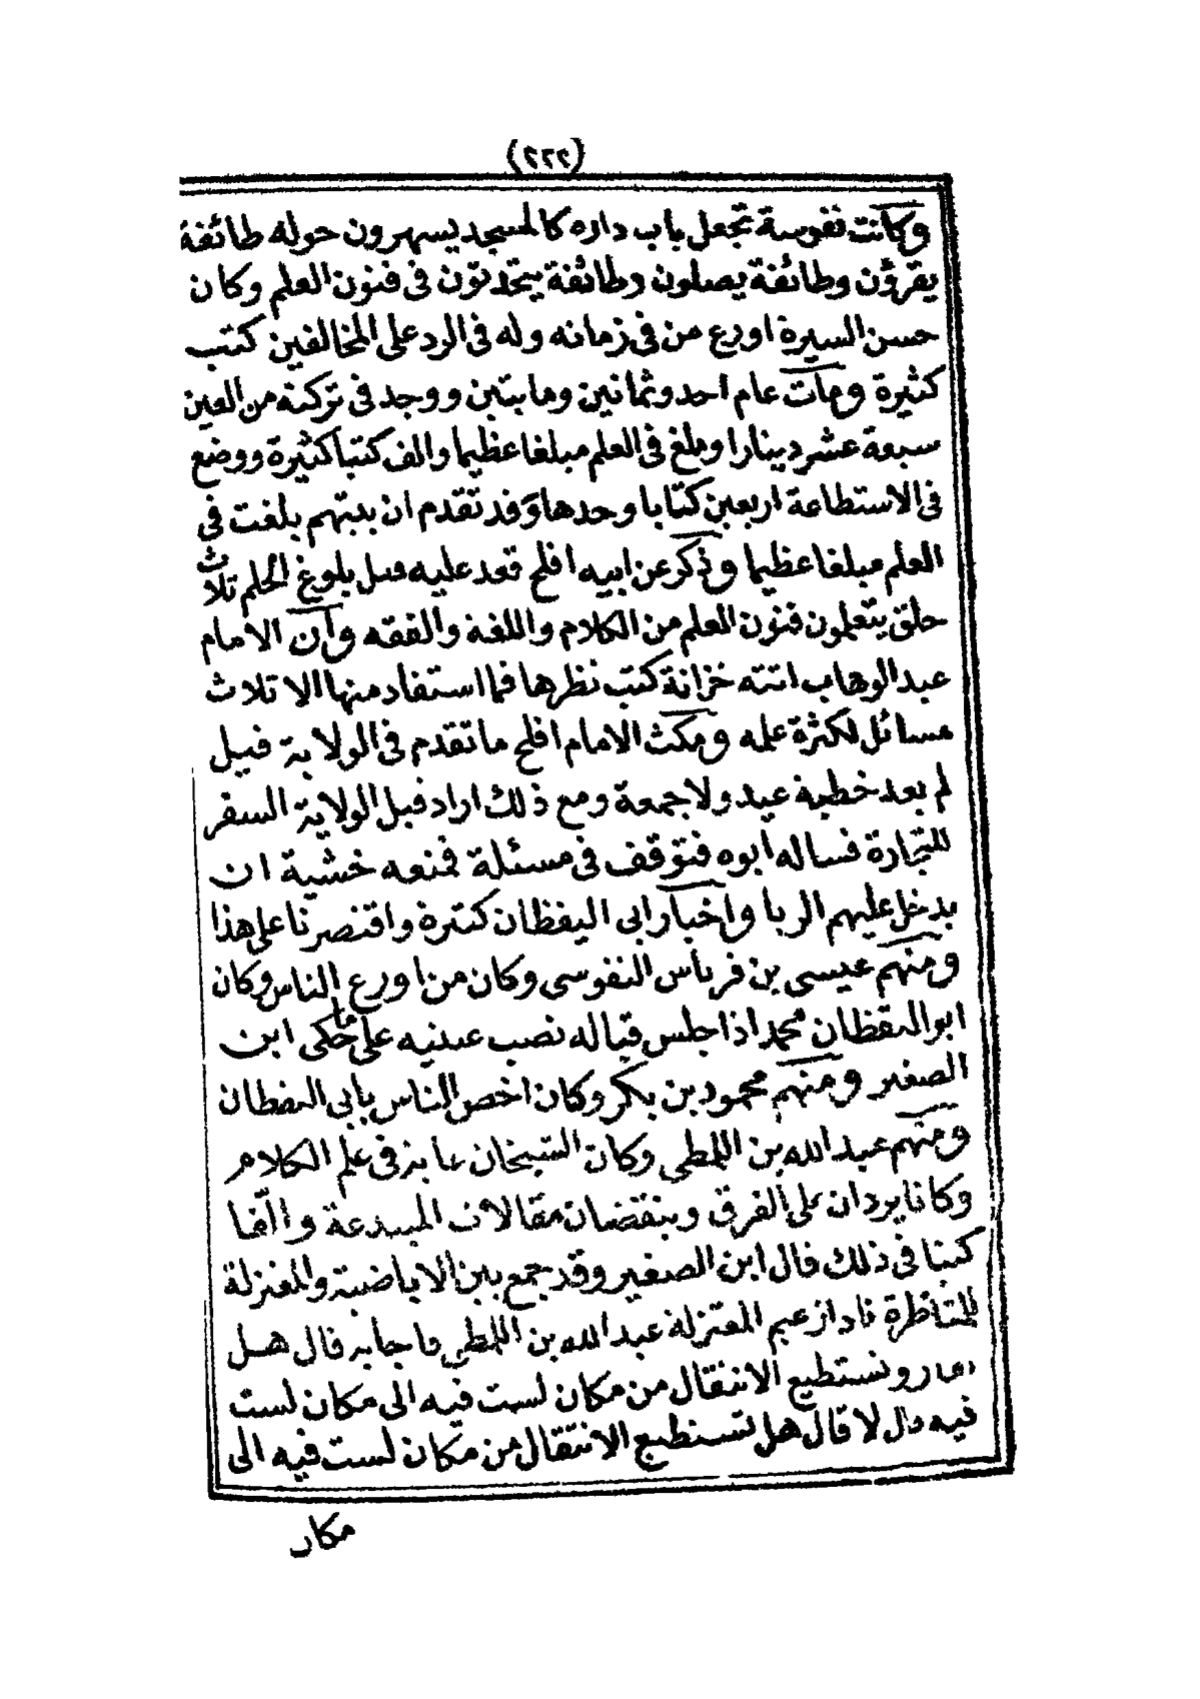 (٢٢٢)
وكانت نفوسة تجعل باب داره كالمسجد يسهرون حوله طائفة
يقرؤن وطائفة يصلون وطائفة يتحدثون فى فنون العلم وكان
حسن السيرة اورع من فى زمانه وله فى الرد على المخالفين كتب
كثيرة ومات عام احد وثمانين ومايتين ووجد فى تركته من العين
سبعة عشر دينارا وبلغ فى العلم مبلغا عظيما والف كتبا كثيرة ووضع
فى الاستطاعة اربعين كتابا وحدها وقد تقدم ان بيتهم بلغت فى
العلم مبلغا عظيما وذكر عن ابيه افلح قعد عليه قبل بلوغ الحلم ثلاث
حلق يتعلمون فنون العلم من الكلام واللغة والفقه وان الامام
عبد الوهاب اتته خزانة كتب نظرها فما استفاد منها الا ثلاث
مسائل لكثرة علمه ومكث الامام افلح ما تقدم فى الولاية قيل
لم يعد خطبة عيد ولا جمعة ومع ذلك اراد قبل الولاية السفر
للتجارة فساله ابوه فتوقف فى مسئلة فمنعه خشية ان
يدخل عليهم الربا واخبار ابى اليقظان كثيرة واقتصرنا على هذا
ومنهم عيسى بن فرناس النفوسى وكان من اورع الناس وكان
ابو اليقظان محمد اذا جلس قباله نصب عينيه على ما حكى ابن
الصغير ومنهم محمود بن بكر وكان اخص الناس بابى اليقظان
ومنهم عبد الله بن اللمطى وكان الشيخان غاية فى علم الكلام
وكانا يردان على الفرق وينقضان مقالات المبتدعة والّفا
كتبا فى ذلك قال ابن الصغير وقد جمع بين الاباضية والمعتزلة
للمناظرة نادا زعيم المعتزلة عبد الله بن اللمطى فاجابه قال هل
وتستطيع الانتقال من مكان لست فيه الى مكان لست
فيه قال لا قال هل تستطيع الانتقال من مكان لست فيه الى
مكان